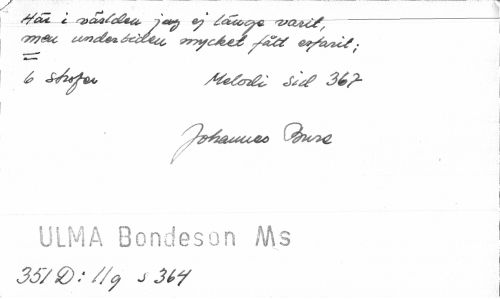 Här i världen jag ej länge varit,
men undertiden mycket fått erfarit;
=
6 strofer Melodi sid 367
Johannes Bure
ULMA Bondeson Ms
351 D: 11 q s 364